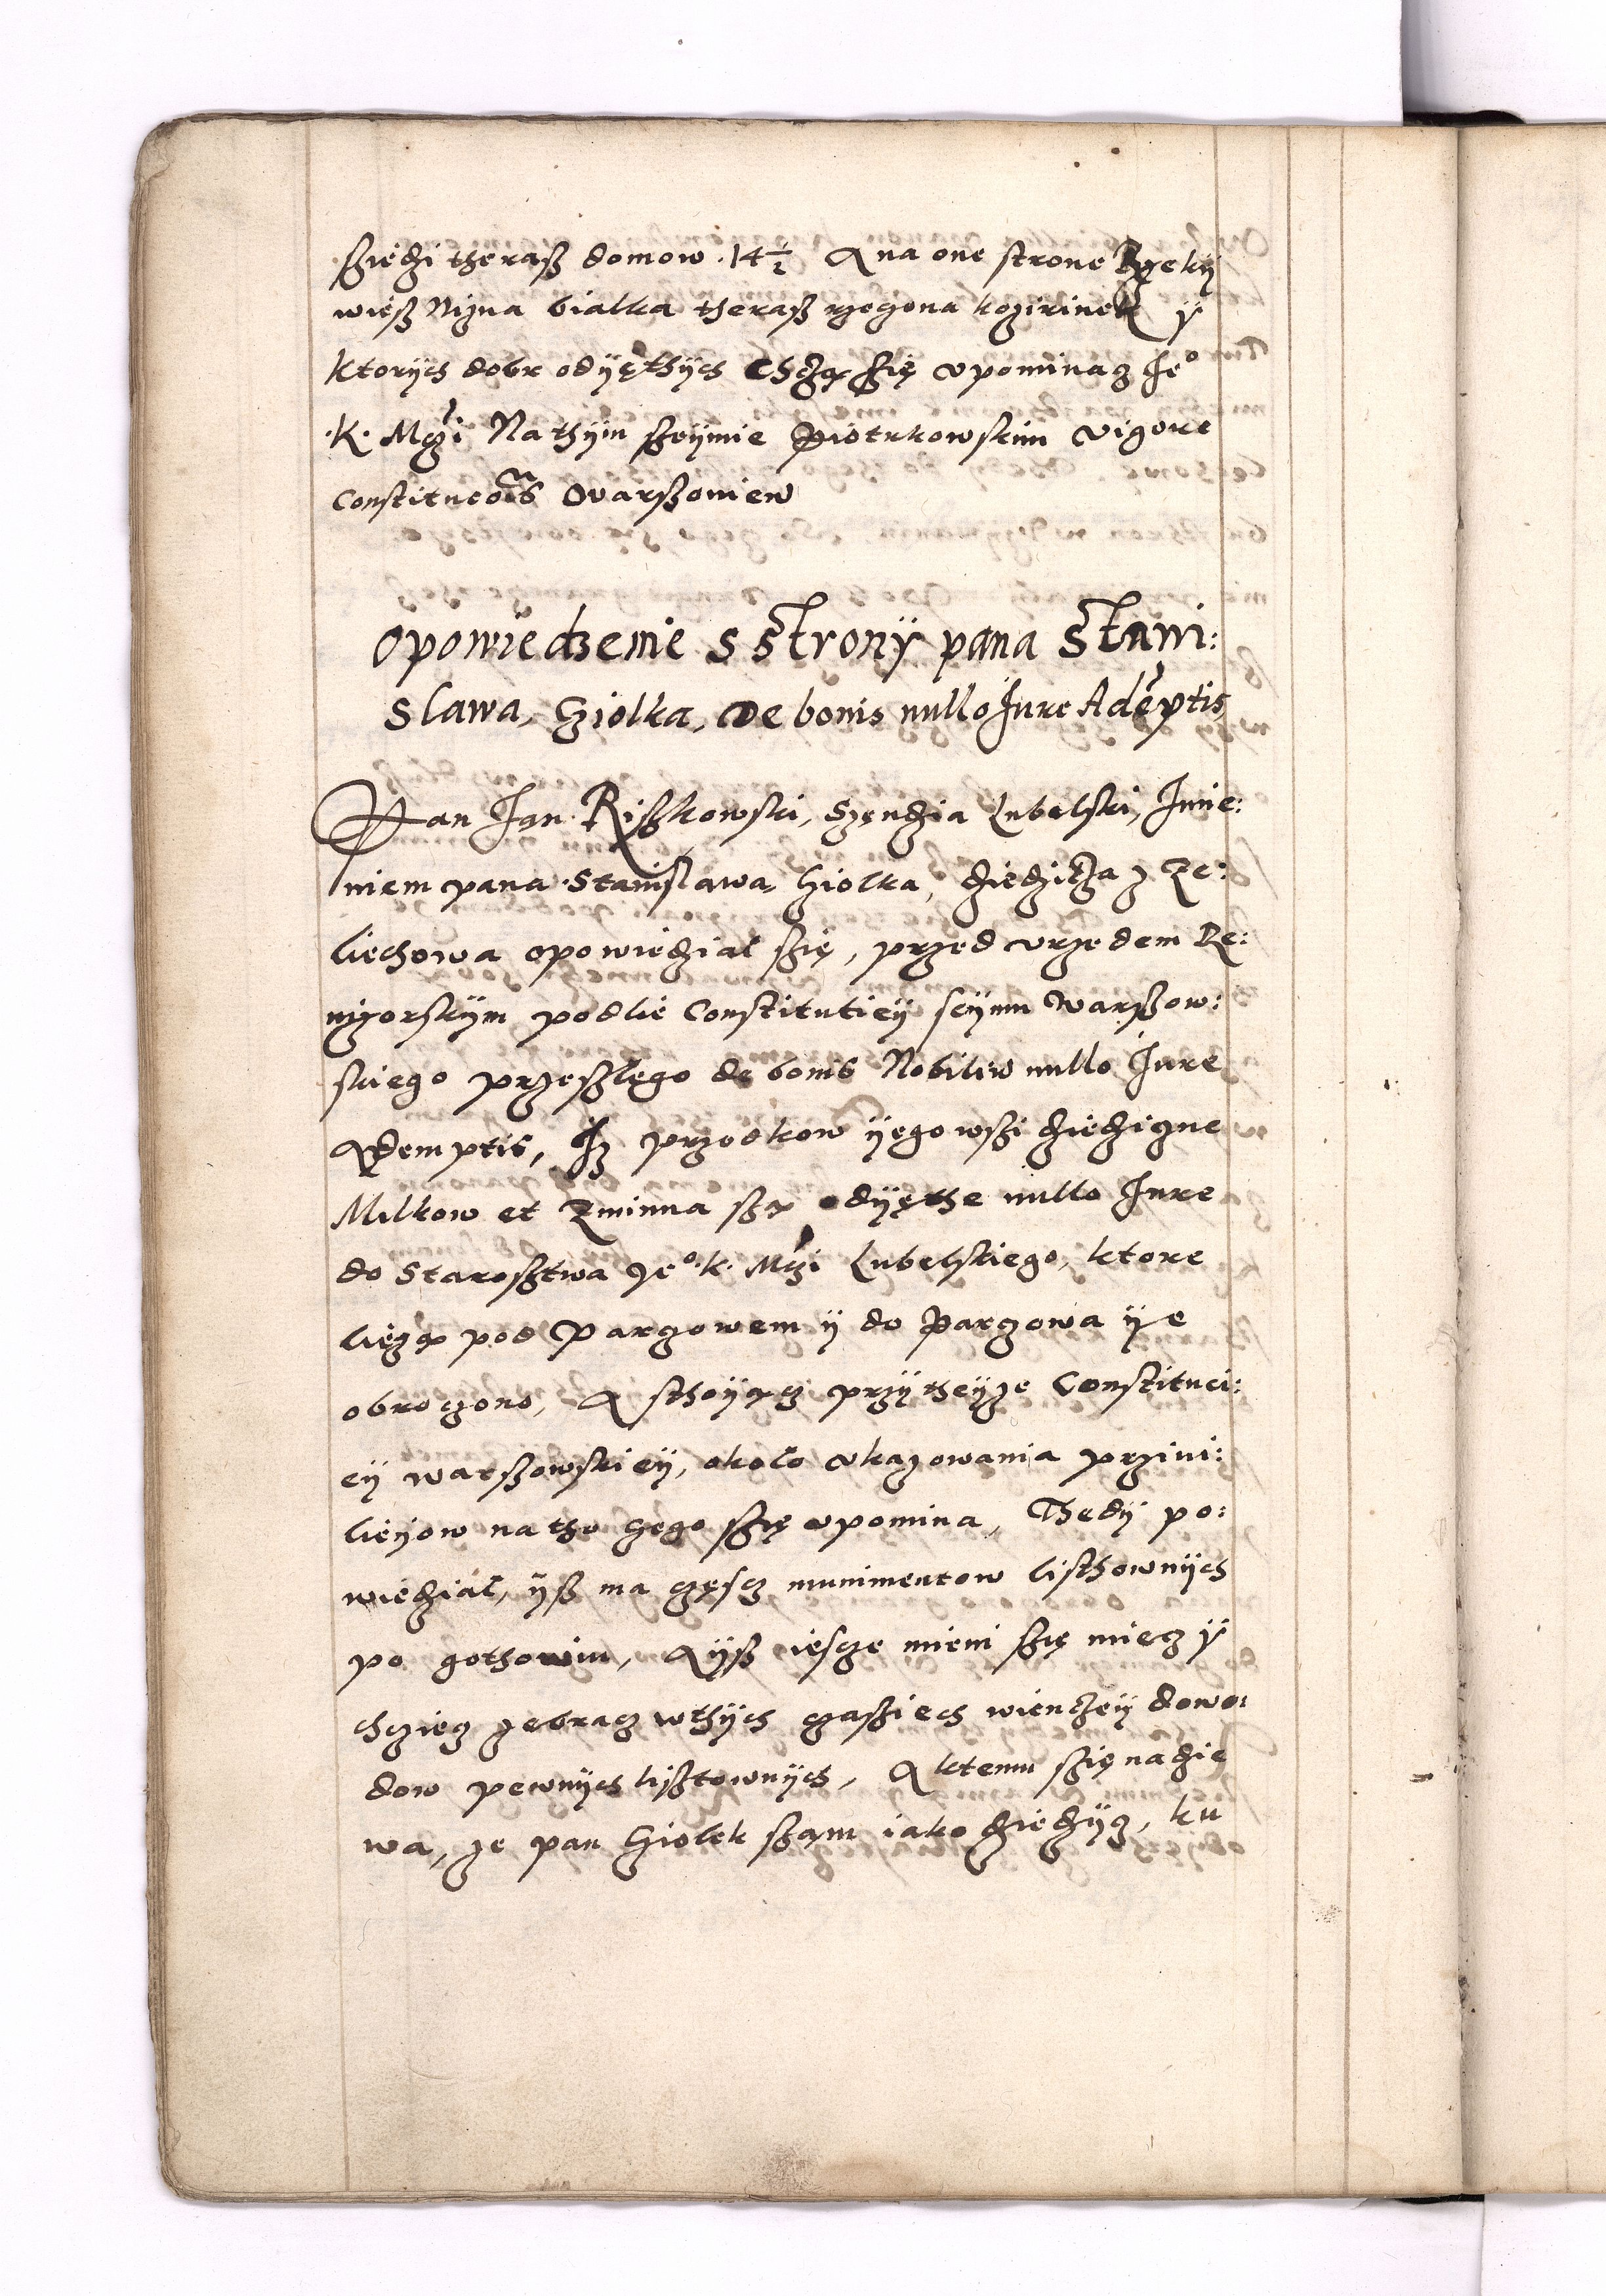 sziedzi theraß domow 14½ A na one strone Rzeky
wieß Nizna bialka theraß rzegona kozirinek y
ktorÿch dobr odÿęthÿch chcą szię upominacz Je°
K. Mczi Na thÿm szeÿmie Piotrkowskim vigore
Constitucois Warszoniew
Opowiedzenie s stronÿ pana Stani:
slawa, Cziolka, De bonis nullo Jure Ademptis
Pan Jan Riszkowski, Szendzia Lubelski, Jmie:
niem pana Stanislawa Cziolka, dziedzicza z Ze:
liechowa opowiedzial szię, przed urzedem Re:
wizorskÿm podlie Constitutieÿ seÿmu Warszow:
skiego przeszlego de bonis Nobiliw nullo Jure
Ademptis, Jz przodkow ÿego wszi dziedzizne
Milkow et Zminna szą odÿęthe nullo Jure
do Starosztwa Je° K. Mczi Lubelskiego, ktore
liezą pod Parzowem ÿ do Parzowa ÿe
obroczono, A sthoÿącz przÿ theÿze Constituci:
eÿ warszowskieÿ, okolo ukazowania prziui:
lieÿow na tho czego szię upomina, Thedÿ po:
wiedzial, ÿß ma częscz munimentow listhownÿch
po gothowiu, A ÿß iescze mieni szię miecz ÿ
chcziecz zebracz w thÿch czasziech wienczeÿ dowo:
dow pewnÿch lisztownÿch, A ktemu szię nadzie
wa, ze pan Cziolek szam iako dziedzÿcz, ku